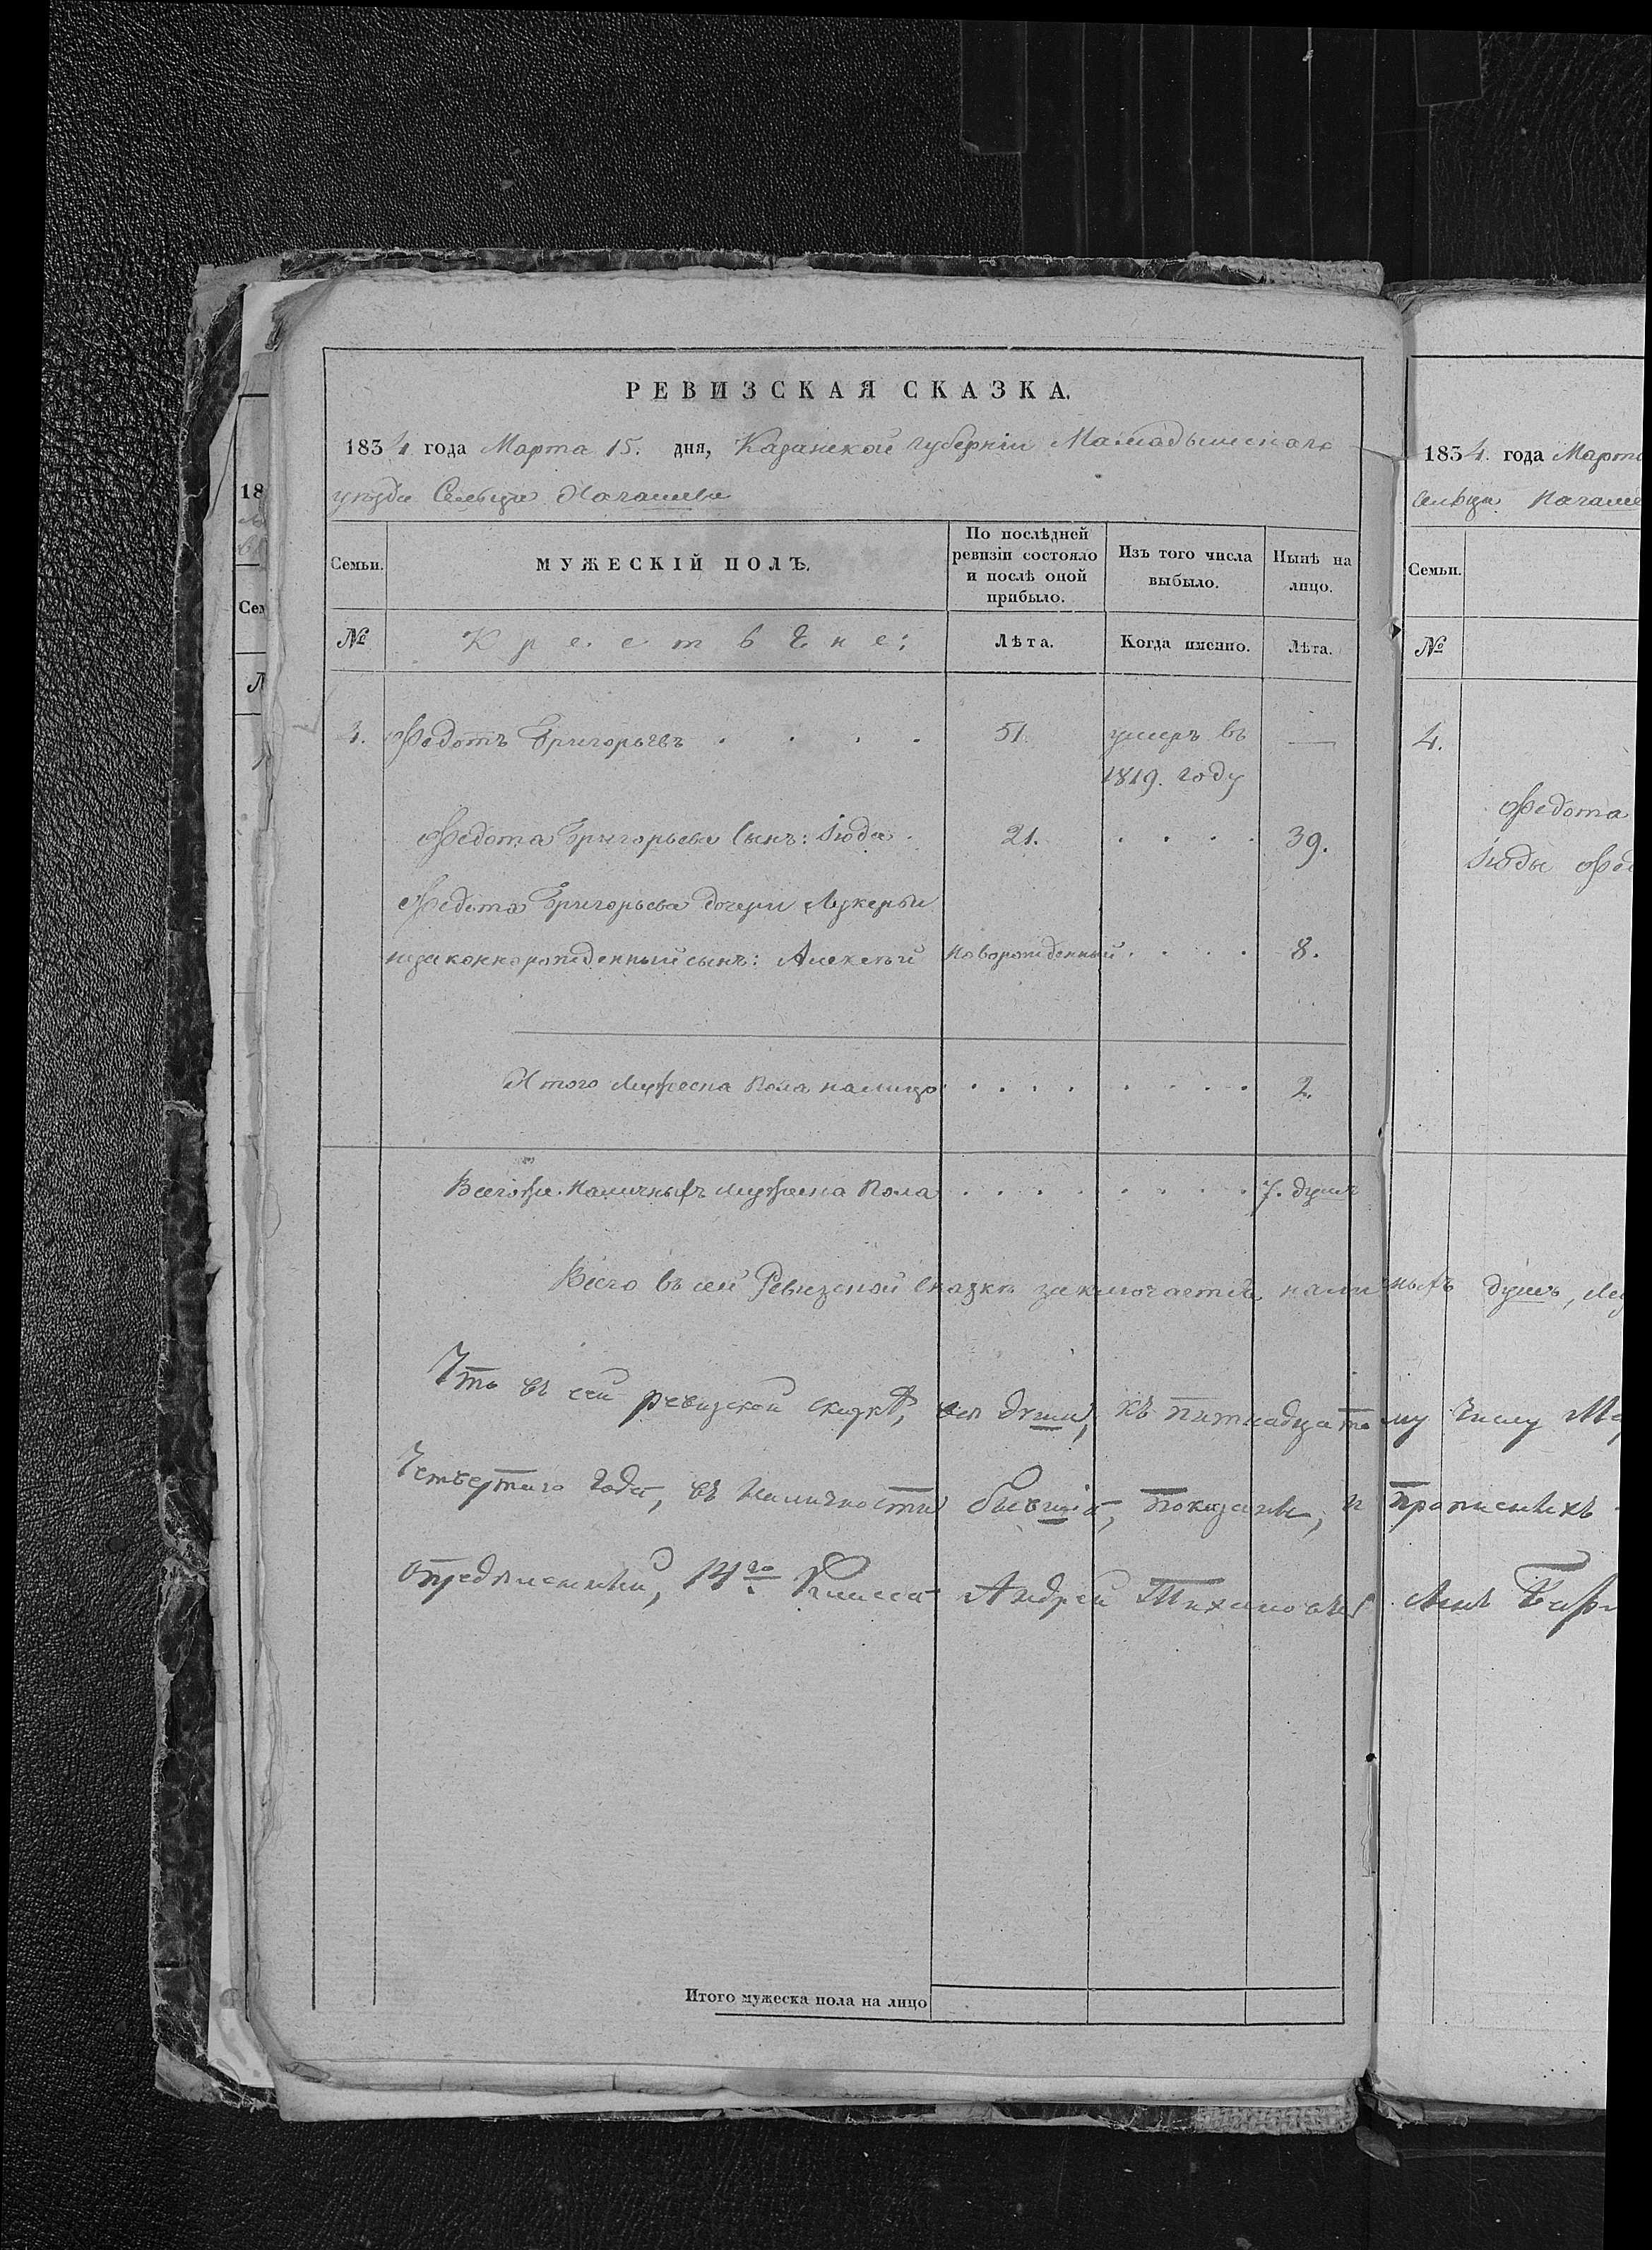 РЕВИЗСКАЯ СКАЗКА.
1834 года Марта 15. дня, Казанской губерніи Мамадышскаго
уѣзда Сельца
Семьи.
МУЖЕСКІЙ ПОЛЪ.
По послѣдней ревизіи состояло и послѣ оной прибыло.
Изъ того числа выбыло.
Нынѣ на лицо.
№
Крестьѣне:
Лѣта.
Когда именно.
Лѣта.
4. Федотъ Григорьевъ . . . . 51. умеръ въ —
1819. году
Федота Григорьева сынъ: Іюда . 21. . . . . 39.
Федота Григорьева дочери Лукерьи
незаконнорожденный сынъ: Алексѣй новорожденный . . . . 8.
Итого мужеска пола налицо . . . . . . . . 2.
Всего же наличныхъ мужеска пола . . . . . . . . 7. душъ
Всего въ сей Ревизской сказкѣ заключается наличныхъ душъ,
Что въ сей ревизской сказкѣ, всѣ души, къ пятнадцатому числу
Четвертаго года, въ наличности бывшія, показаны, и
14го класса Андрей
Итого мужеска пола на лицо
1834. года Марта
Сельца
Семьи.
№
4.
Федота
Іюды
18